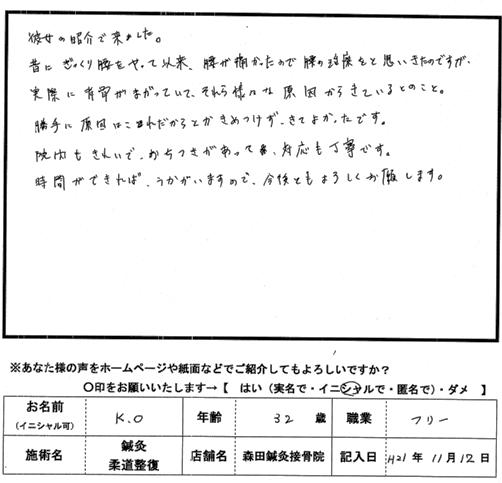 彼女の紹介で来ました。
昔にぎっくり腰をやって以来、腰が痛かったので腰の治療をと思いきたのですが、
実際に背骨がまがっていて、それら様々な原因からきているとのこと。
勝手に原因はこれだからとかきめつけず、きてよかったです。
院内もきれいで、おちつきがあって、対応も丁寧です。
時間ができれば、うかがいますので、今後ともよろしくお願します。
※あなた様の声をホームページや紙面などでご紹介してもよろしいですか?
○印をお願いいたします→【 はい（実名で・イニシャルで・匿名で）・ダメ 】
お名前 （イニシャル可） K.O 年齢 32 歳 職業 フリー
施術名 鍼灸 柔道整復 店舗名 森田鍼灸接骨院 記入日 H21 年 11 月 12 日